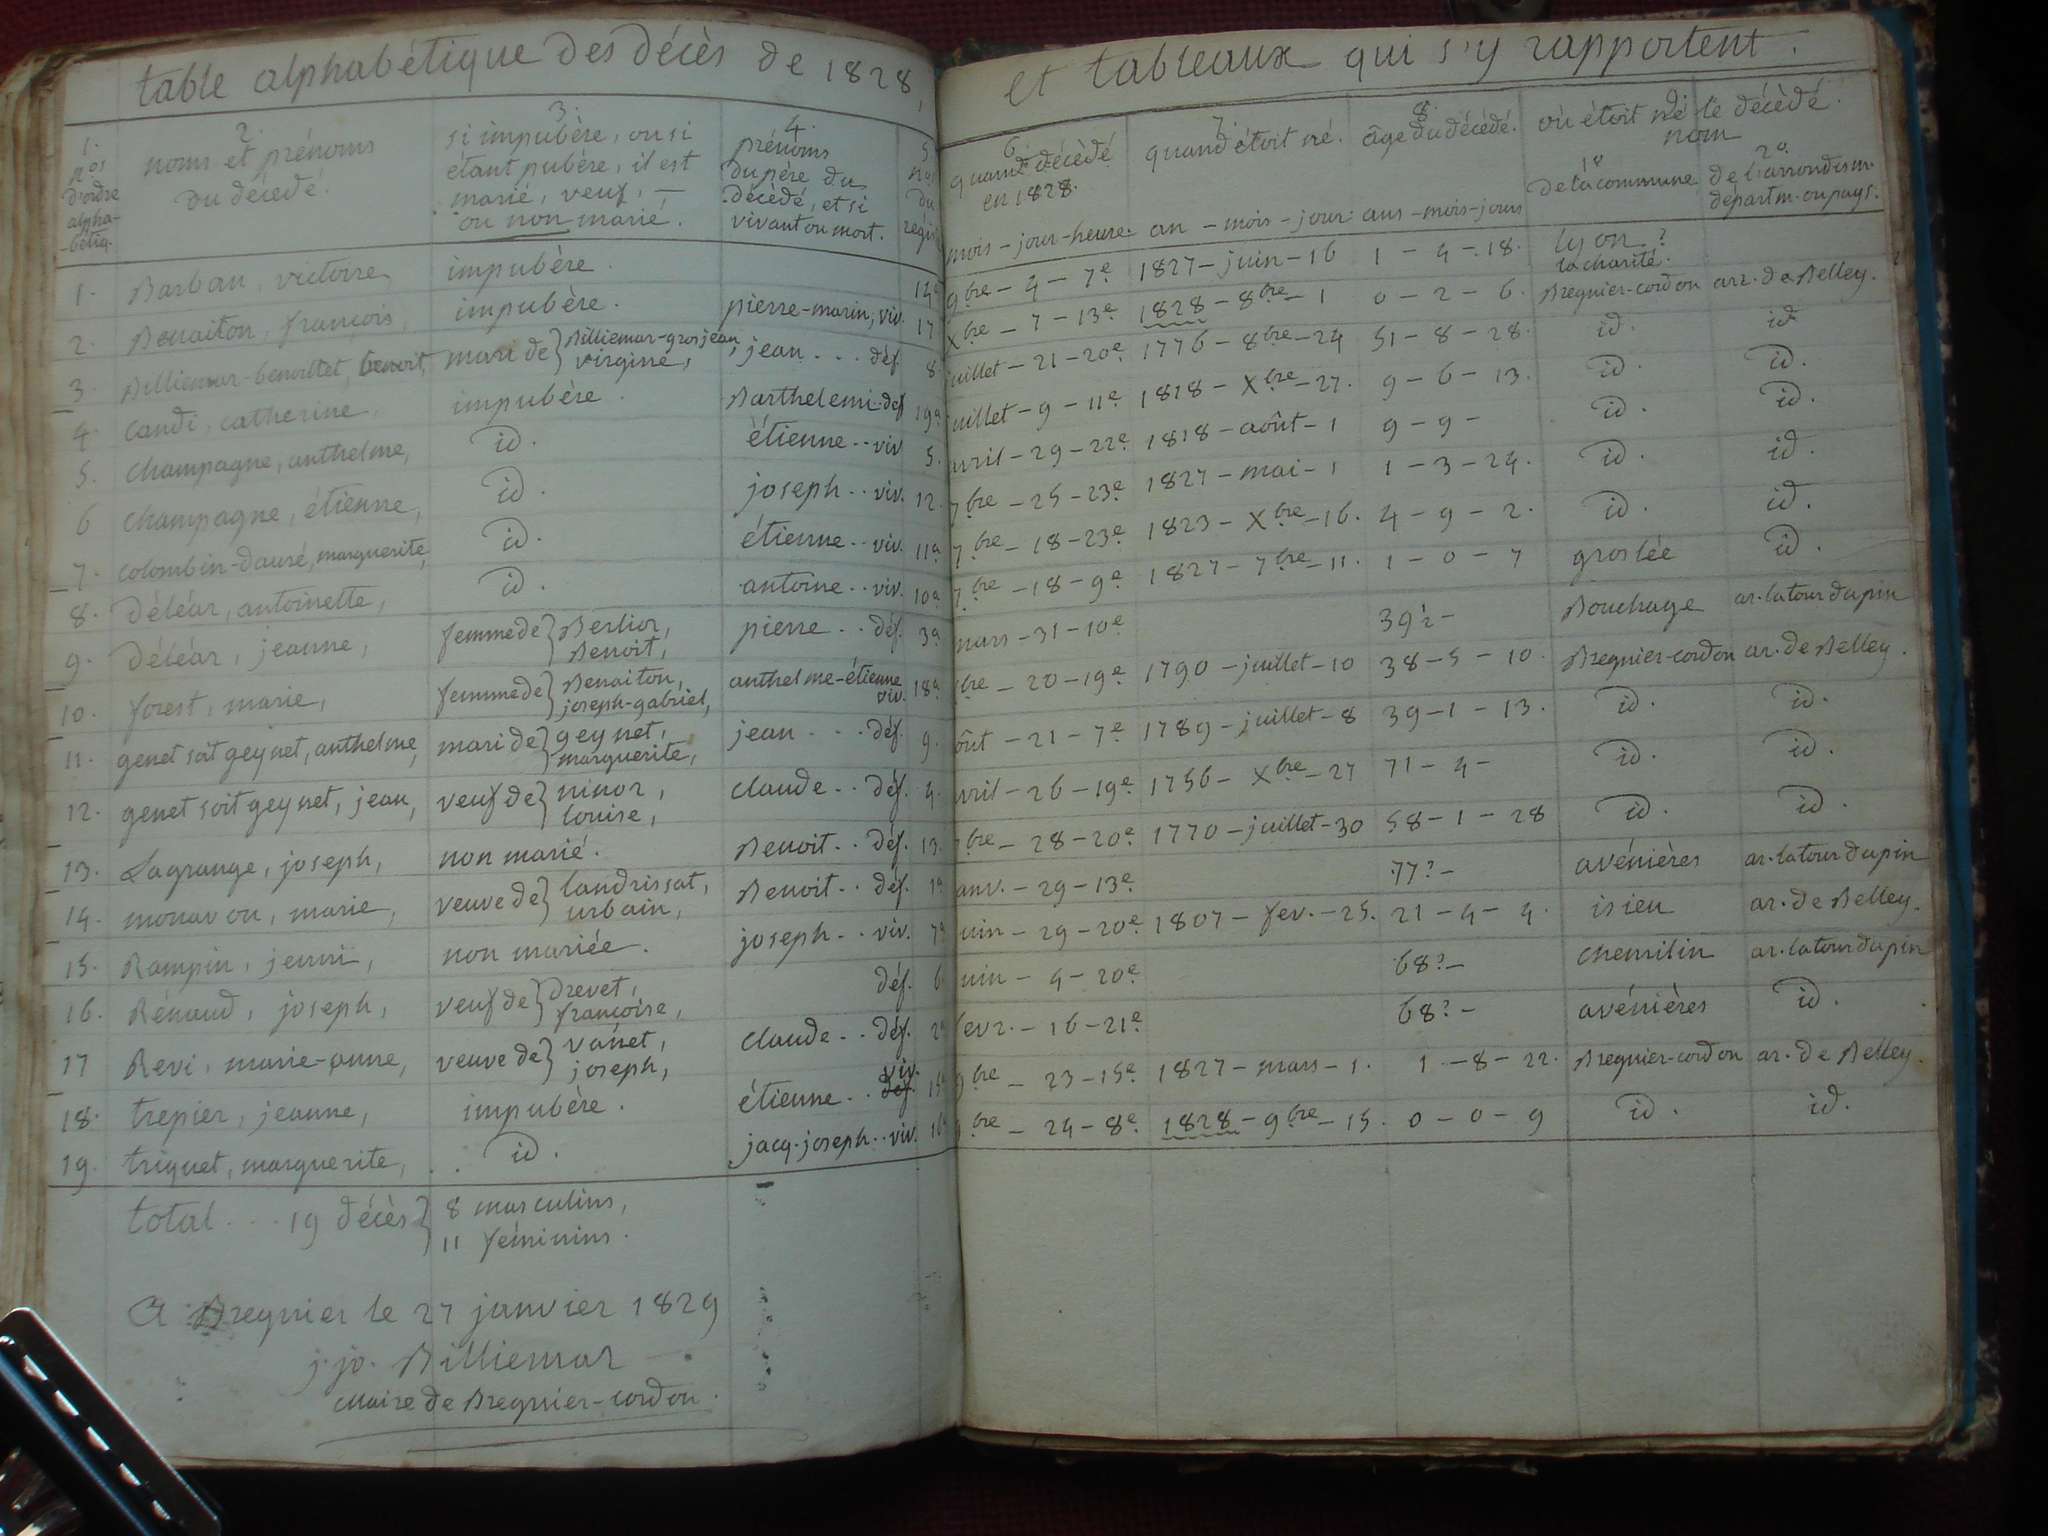 table alphabétique des décès de 1828, et tableaux qui s'y rapportent.
1. nos d'ordre alpha-bétiq.
2. noms et prénoms du décédé.
3. si impubère, ou si étant pubère, il est marié, veuf, — ou non marié.
4. prénoms du père du décédé, et si vivant ou mort.
5. nos du régis
6. quand décédé en 1828. mois - jour - heure.
7. quand étoit né. an - mois - jour.
8. âge du décédé. ans - mois - jours
9. où étoit né le décédé. nom
1º de la commune
2º de l'arrondissm. départm. ou pays.
1. Barban, victoire, impubère. 14a 9bre - 4 - 7e 1827 - juin - 16 1 - 4 - 18. lyon? la charité.
2. Benaiton, françois, impubère. pierre-marin, viv. 17 Xbre - 7 - 13e 1828 - 8bre - 1 0 - 2 - 6. Bregnier-cordon arr. de Belley.
3. Billiemar-benoittet, benoit, mari de } Billiemar-grosjean, virginie, jean . . . déf. 8. juillet - 21 - 20e 1776 - 8bre - 24 51 - 8 - 28. id. id.
4. candi, catherine, impubère. Barthelemi . déf 19a juillet - 9 - 11e 1818 - Xbre - 27. 9 - 6 - 13. id. id.
5. champagne, anthelme, id. étienne . . viv 5. avril - 29 - 22e 1818 - août - 1 9 - 9 - id. id.
6 champagne, étienne, id. joseph . . viv. 12. 7bre - 25 - 23e 1827 - mai - 1 1 - 3 - 24. id. id.
7. colombin-dauré, marguerite, id. étienne . . viv. 11a 7bre - 18 - 23e 1823 - Xbre - 16. 4 - 9 - 2. id. id.
8. déléar, antoinette, id. antoine . . viv. 10a 7bre - 18 - 9e 1827 - 7bre - 11. 1 - 0 - 7 groslée id.
9. déléar, jeanne, femme de } Berlior, Benoit, pierre . . déf. 3a mars - 31 - 10e 39? - Bouchage ar. latour dupin
10. forest, marie, femme de } Benaiton, joseph-gabriel, anthelme-étienne viv. 18a bre - 20 - 19e 1790 - juillet - 10 38 - 5 - 10. Bregnier-cordon ar. de Belley.
11. genet soit geynet, anthelme, mari de } geynet, marguerite, jean . . . déf. 9. oût - 21 - 7e 1789 - juillet - 8 39 - 1 - 13. id. id.
12. genet soit geynet, jean, veuf de } ninor, louise, claude . . déf. 4. vril - 26 - 19e 1756 - Xbre - 27 71 - 4 - id. id.
13. Lagrange, joseph, non marié. Benoit . . déf. 13. bre - 28 - 20e 1770 - juillet - 30 58 - 1 - 28 id. id.
14. monavon, marie, veuve de } landrissat, urbain, Benoit . . déf. 1a anv. - 29 - 13e 77? - avénières ar. latour dupin
15. Rampin, jenni, non mariée. joseph . . viv. 7a uin - 29 - 20e 1807 - fev. - 25. 21 - 4 - 4. isieu ar. de Belley.
16. Rénaud, joseph, veuf de } drevet, françoise, déf. 6 uin - 4 - 20e 68? - chemilin ar. latour dupin
17 Revi, marie-anne, veuve de } vanet, joseph, claude . . déf. 2a fevr. - 16 - 21e 68? - avénières id.
18. trepier, jeanne, impubère. étienne . . déf. viv. 15a 9bre - 23 - 15e 1827 - mars - 1. 1 - 8 - 22. Bregnier-cordon ar. de Belley.
19. triquet, marguerite, id. jacq. joseph . . viv. 16a bre - 24 - 8e 1828 - 9bre - 15. 0 - 0 - 9 id. id.
total . . . 19 décès } 8 masculins,
11 féminins.
A Bregnier le 27 janvier 1829
j. jo. Billiemar
Maire de Bregnier-cordon.